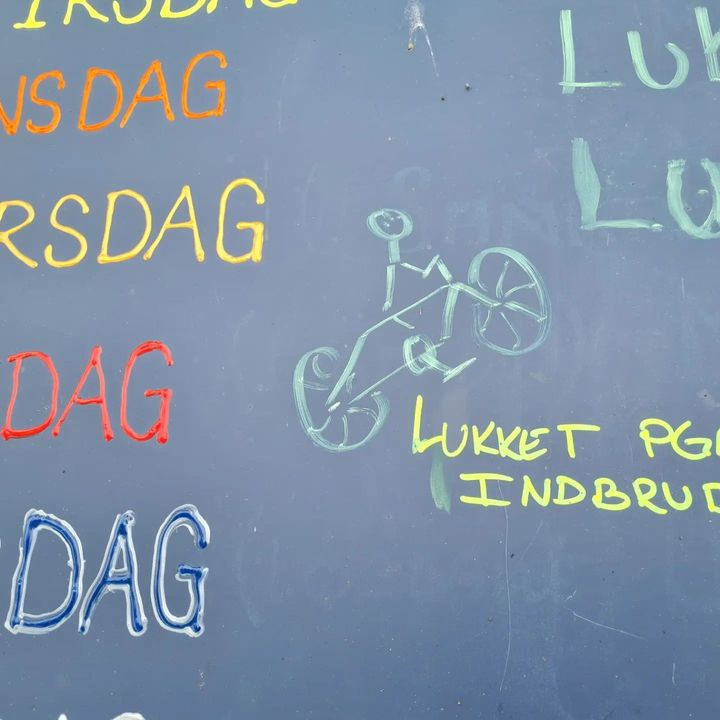 IRSDAG
NSDAG
RSDAG
DAG
DAG
LUK
LU
LUKKET PGA
INDBRUD